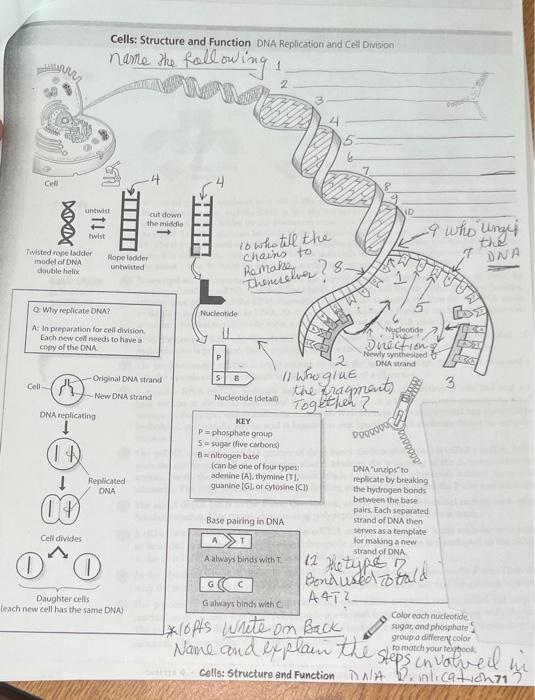 Cells: Structure and Function DNA Replication and Cell Division
name the following
1
2
3
4
5
6
7
8
9
10
Cell
4
4
untwist
twist
cut down
the middle
Twisted rope ladder
model of DNA
double helix
Rope ladder
untwisted
Nucleotide
10 who tell the
chains to
Remake
Themselves? 8
9 who unzip
the
DNA
7
1
5
6
Q: Why replicate DNA?
A: In preparation for cell division.
Each new cell needs to have a
copy of the DNA.
Nucleotide
The
Direction
Newly synthesized
DNA strand
2
3
11 who glue
the fragments
Together?
P
S B
Nucleotide (detail)
Cell
Original DNA strand
New DNA strand
DNA replicating
Replicated
DNA
Cell divides
Daughter cells
(each new cell has the same DNA)
KEY
P = phosphate group
S = sugar (five carbons)
B = nitrogen base
(can be one of four types:
adenine [A], thymine [T],
guanine [G], or cytosine [C])
Base pairing in DNA
A T
A always binds with T.
G C
G always binds with C.
DNA "unzips" to
replicate by breaking
the hydrogen bonds
between the base
pairs. Each separated
strand of DNA then
serves as a template
for making a new
strand of DNA.
12 The type ?
Bond used To hold
A & T?
Color each nucleotide,
sugar, and phosphate
group a different color
to match your textbook.
*10 pts write on Back
Name and explain the steps involved in
DNA Replication?
Cells: Structure and Function 71